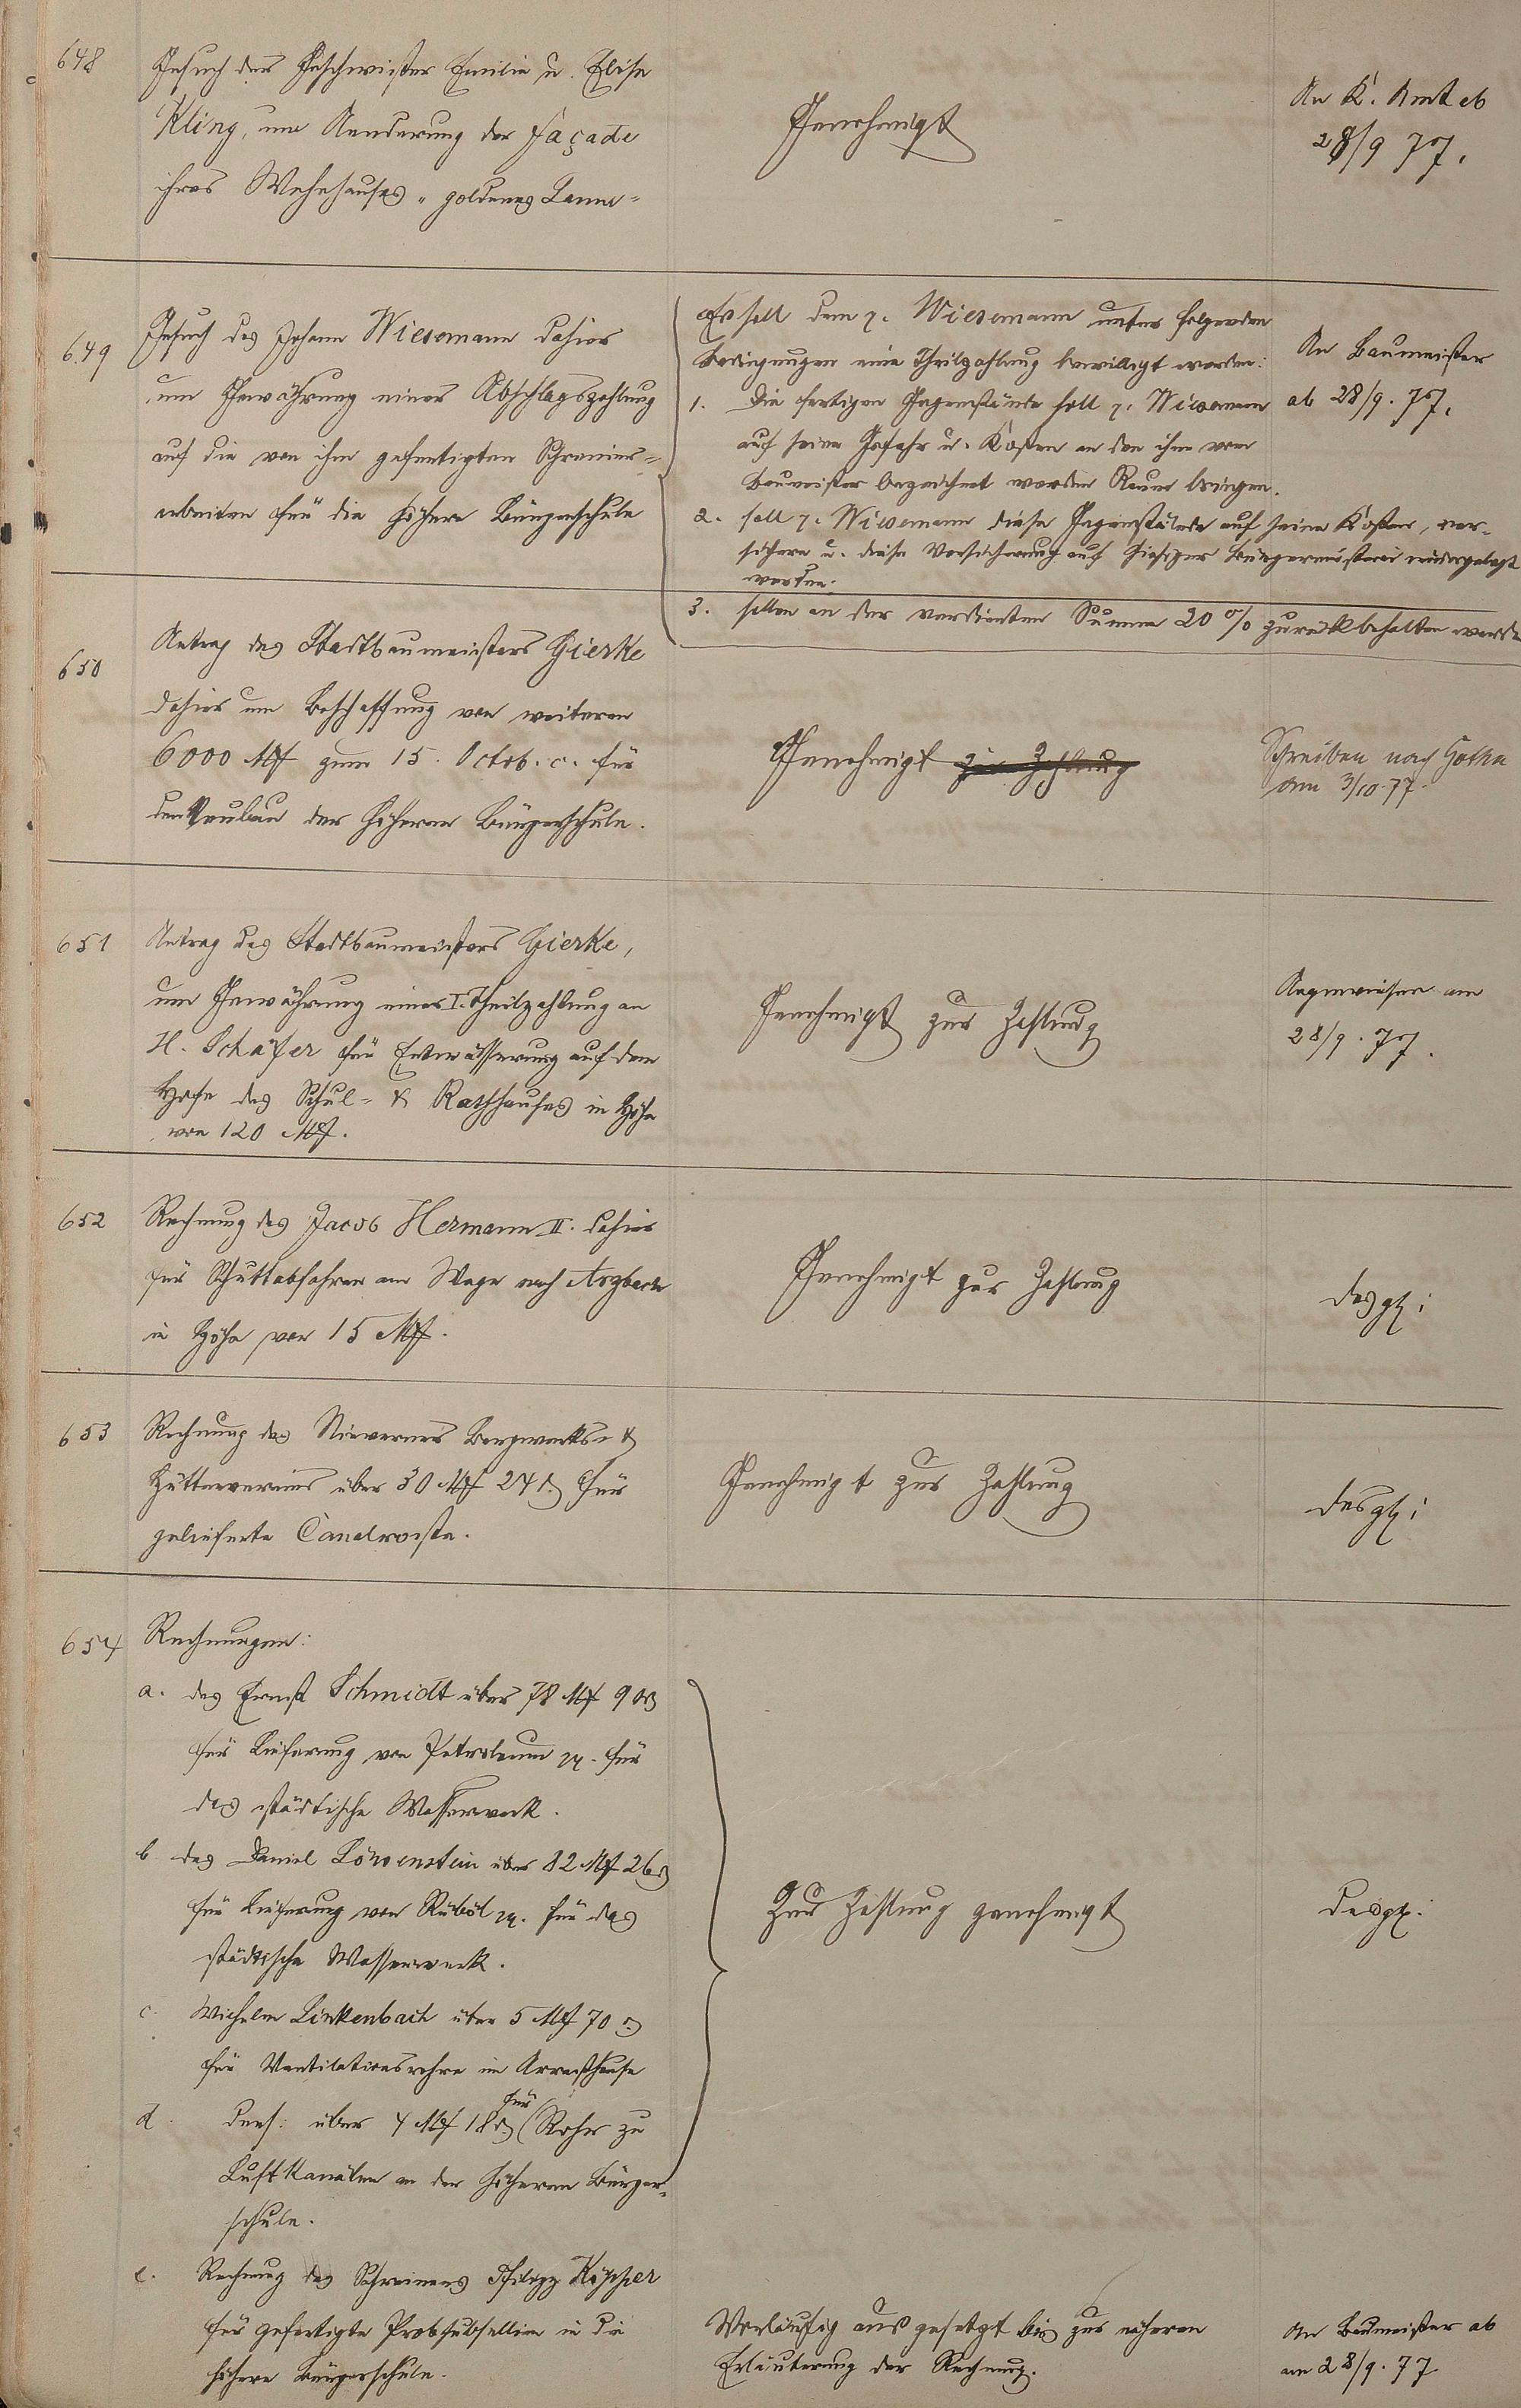 648
Gesuch der Geschwister Emilie u. Elise
Kling, um Aenderung der Façade
ihres Wohnhauses „goldenes Lamm"
Genehmigt
An K. Amt ab
28/9 77.
649
Gesuch des Johann Wiesemann dahier
um Gewährung einer Abschlagszahlung
auf die von ihm gefertigten Schreiner-
arbeiten für die höhere Bürgerschule
Es soll dem p. Wiesemann unter folgenden
Bedingungen eine Theilzahlung bewilligt werden:
1. Die fertigen Gegenstände soll p. Wiesemann
auf seine Gefahr u. Kosten an den ihm vom
Baumeister bezeichnet werden Raum bringen.
2. soll p. Wiesemann diese Gegenstände auf seine Kosten, ver-
sichern u. diese Versicherung auf hiesiger Bürgermeisterei niedergelegt
werden.
3. sollen an der verdienten Summe 20 % zurückbehalten werde
An Baumeister
ab 28/9. 77.
650
Antrag des Stadtbaumeisters Gierke
dahier um Beschaffung von weiteren
6000 Mk zum 15. Octob. c. für
den Neubau der höheren Bürgerschule.
Genehmigt zur Zahlung
Schreiben nach Gotha
am 3/10. 77.
651
Antrag des Stadtbaumeisters Gierke,
um Gewährung einer I. Theilzahlung an
H. Schäfer für Entwässerung auf dem
Hofe des Schul- & Rathhauses in Höhe
von 120 Mk.
Genehmigt zur Zahlung
Angewiesen am
28/9. 77.
652
Rechnung des Jacob Hermann II. dahier
für Schuttabfahren am Wege nach Arzbach
in Höhe von 15 Mk.
Genehmigt zur Zahlung
desgl:
653
Rechnung des Nieverner Bergwerks- &
Hüttenvereins über 30 Mk 24 d für
gelieferte Canalroste.
Genehmigt zur Zahlung
desgl:
654
Rechnungen:
a. des Ernst Schmidt über 78 Mk 90 d
für Lieferung von Petroleum pp. für
das städtische Wasserwerk.
b des Daniel Löwenstein über 82 Mk 26 d
für Lieferung von Rüböl pp. für das
städtische Wasserwerk.
c. Wilhelm Linkenbach über 5 Mk 70 d
für Ventilationsrohre im Arresthause
d. Ders: über 4 Mk 18 d für Rohr zu
Luftkanälen an der höheren Bürger-
schule.
Zur Zahlung genehmigt
desgl.
e. Rechnung des Schreiners Philipp Köpper
für gefertigte Probsubsellien in die
höhere Bürgerschule.
Vorläufig ausgesetzt bis zur näheren
Erläuterung der Rechnung.
An Baumeister ab
am 28/9. 77